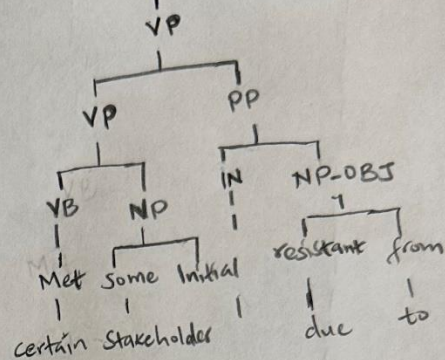 VP
VP PP
VB NP IN NP-OBJ
Met some Initial resistant from
certain stakeholder due to